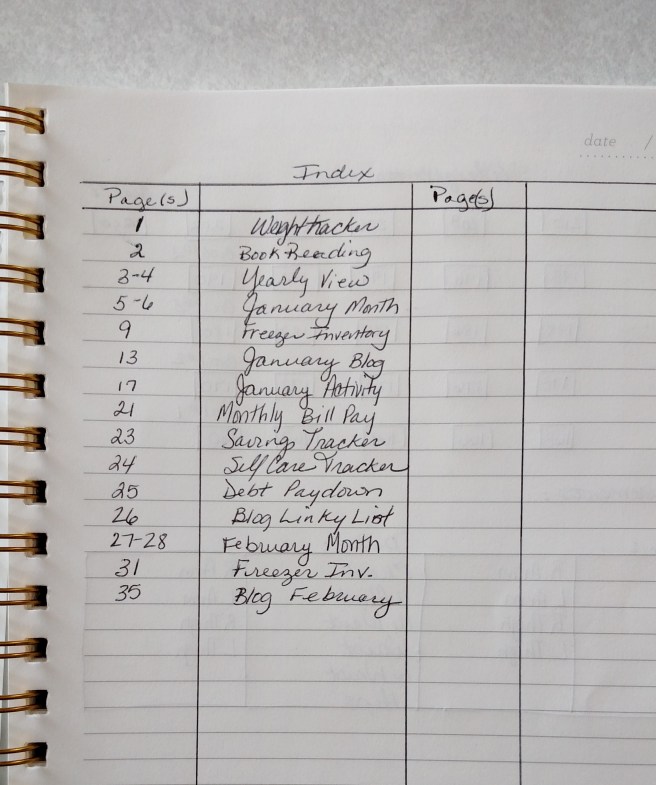 date /
Index
Page(s) Page(s)
1 Weight tracker
2 Book Reading
3-4 Yearly View
5-6 January Month
9 Freezer Inventory
13 January Blog
17 January Activity
21 Monthly Bill Pay
23 Savings Tracker
24 Self Care Tracker
25 Debt Paydown
26 Blog Linky List
27-28 February Month
31 Freezer Inv.
35 Blog February